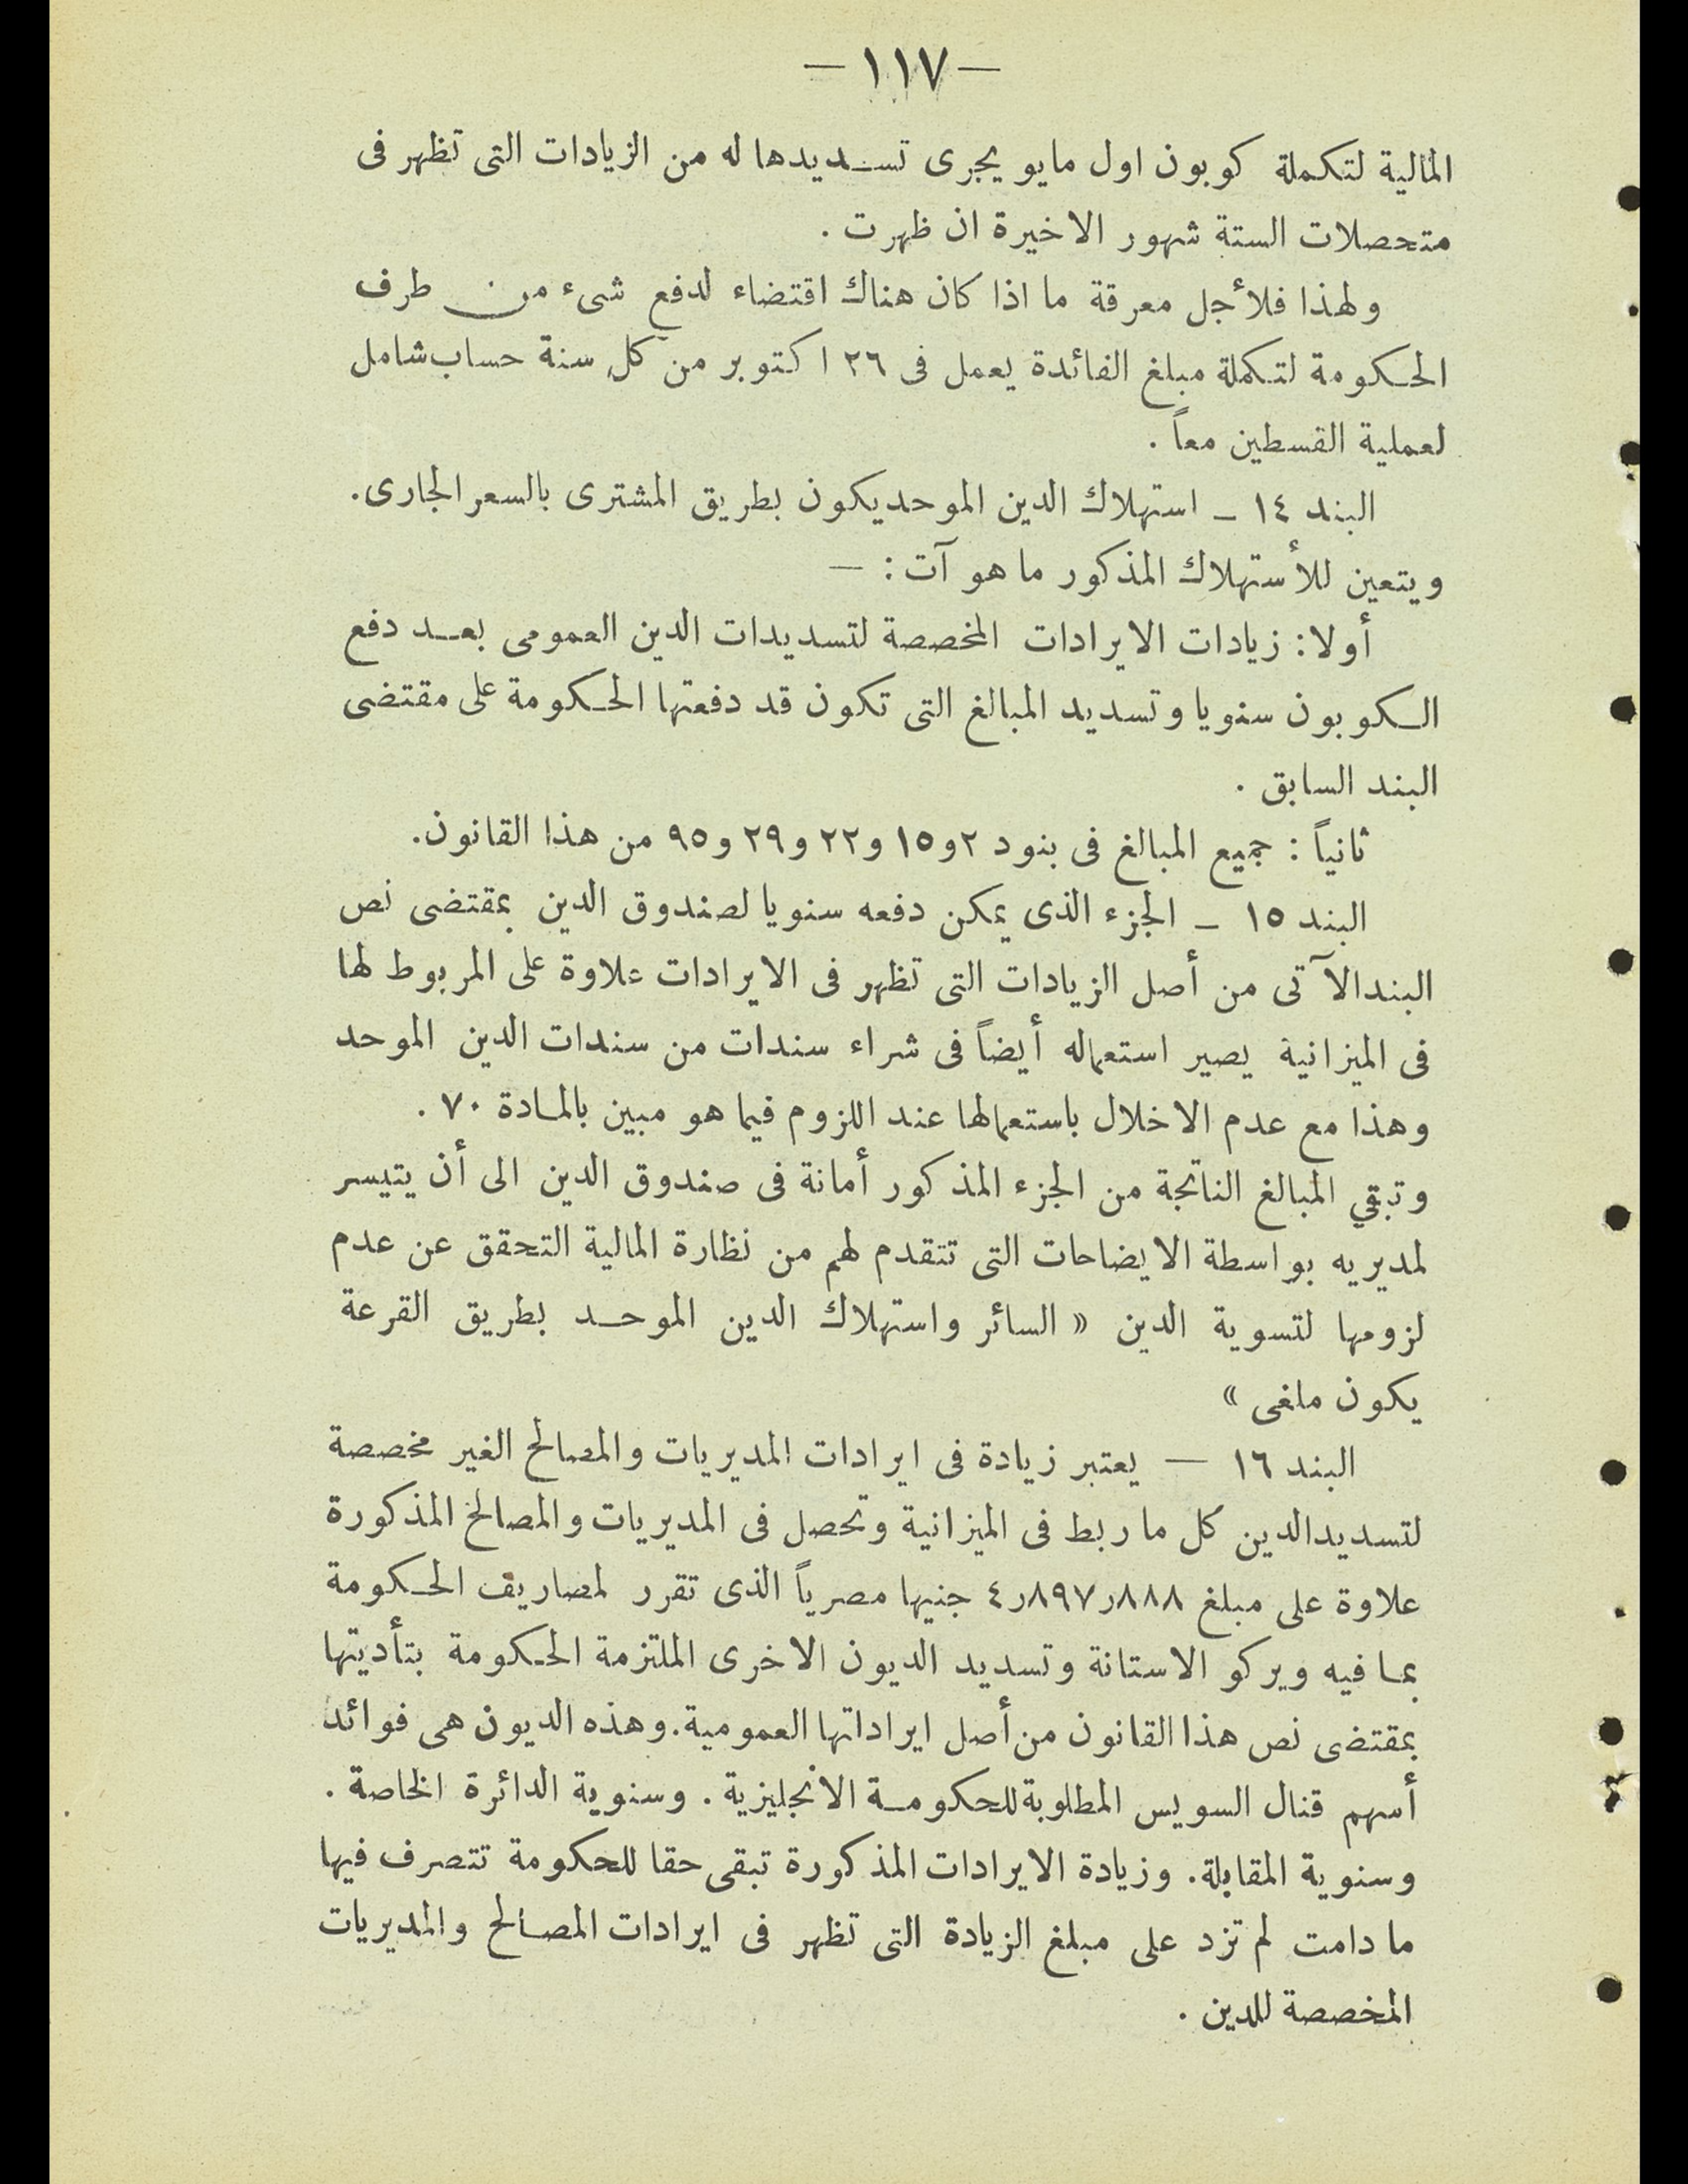 — ١١٧ —
المالية لتكملة كوبون اول مايو يجرى تسديدها له من الزيادات التى تظهر فى
متحصلات الستة شهور الاخيرة ان ظهرت .
ولهذا فلأجل معرقة ما اذا كان هناك اقتضاء لدفع شىء من طرف
الحكومة لتكملة مبلغ الفائدة يعمل فى ٢٦ اكتوبر من كل سنة حساب شامل
لعملية القسطين معاً .
البند ١٤ — استهلاك الدين الموحد يكون بطريق المشترى بالسعر الجارى .
ويتعين للأستهلاك المذكور ما هو آت : —
أولا : زيادات الايرادات المخصصة لتسديدات الدين العمومى بعد دفع
الكوبون سنويا وتسديد المبالغ التى تكون قد دفعتها الحكومة على مقتضى
البند السابق .
ثانياً : جميع المبالغ فى بنود ٢ و١٥ و٢٢ و٢٩ و٩٥ من هذا القانون .
البند ١٥ — الجزء الذى يمكن دفعه سنويا لصندوق الدين بمقتضى نص
البند الآتى من أصل الزيادات التى تظهر فى الايرادات علاوة على المربوط لها
فى الميزانية يصير استعماله أيضاً فى شراء سندات من سندات الدين الموحد
وهذا مع عدم الاخلال باستعمالها عند اللزوم فيما هو مبين بالمادة ٧٠ .
وتبقي المبالغ الناتجة من الجزء المذكور أمانة فى صندوق الدين الى أن يتيسر
لمديريه بواسطة الايضاحات التى تتقدم لهم من نظارة المالية التحقق عن عدم
لزومها لتسوية الدين « السائر واستهلاك الدين الموحد بطريق القرعة
يكون ملغى »
البند ١٦ — يعتبر زيادة فى ايرادات المديريات والمصالح الغير مخصصة
لتسديد الدين كل ما ربط فى الميزانية وتحصل فى المديريات والمصالح المذكورة
علاوة على مبلغ ٤٫٨٩٧٫٨٨٨ جنيها مصرياً الذى تقرر لمصاريف الحكومة
بما فيه ويركو الاستانة وتسديد الديون الاخرى الملتزمة الحكومة بتأديتها
بمقتضى نص هذا القانون من أصل ايراداتها العمومية . وهذه الديون هى فوائد
أسهم قنال السويس المطلوبة للحكومة الانجليزية . وسنوية الدائرة الخاصة .
وسنوية المقابلة . وزيادة الايرادات المذكورة تبقى حقا للحكومة تتصرف فيها
ما دامت لم تزد على مبلغ الزيادة التى تظهر فى ايرادات المصالح والمديريات
المخصصة للدين .